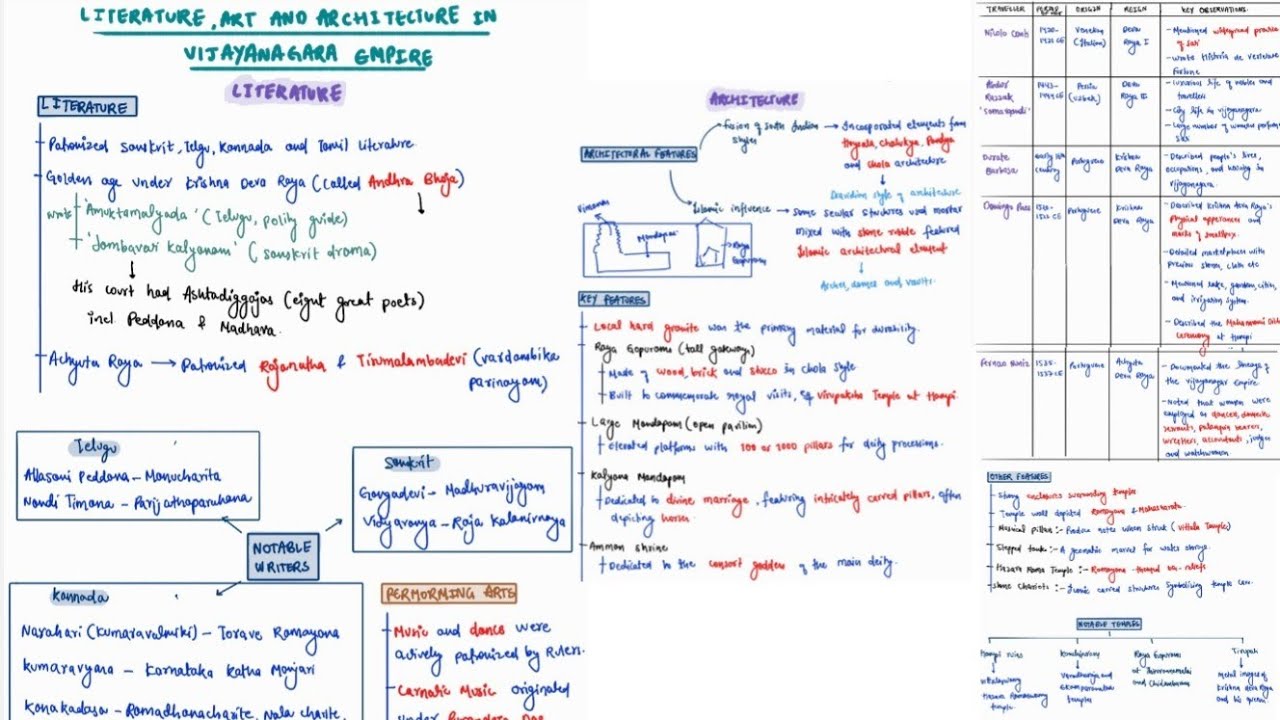 LITERATURE, ART AND ARCHITECTURE IN
VIJAYANAGARA EMPIRE
LITERATURE
LITERATURE
Patronized Sanskrit, Telgu, Kannada and Tamil Literature.
Golden age under Krishna Deva Raya (called Andhra Bhoja)
'Amuktamalyada' (Telugu, polity guide)
'Jambavati Kalyanam' (Sanskrit drama)
His court had Ashtadiggajas (eight great poets)
incl. Peddana & Madhava.
Achyuta Raya → Patronized Rajanatha & Tirumalambadevi (vardambika
parinayam)
Telugu
Allasani Peddana – Manucharita
Nandi Timana – Parijathaparahana
Sanskrit
Gangadevi – Madhuravijayam
Vidyaranya – Raja Kalanirnaya
NOTABLE
WRITERS
Kannada
Narahari (Kumaravalmiki) – Torave Ramayana
Kumaravyana – Karnataka Katha Manjari
Kanakadasa – Ramadhanacharite, Nala charite,
PERMORMING ARTS
Music and dance were
actively patronized by Rulers.
Carnatic Music originated
ARCHITECTURE
ARCHITECTURAL FEATURES
Fusion of South Indian → Incorporated elements from
styles
Hoysala, Chalukya, Pandya
and Chola architecture
Dravidian style of architecture
Islamic influence → Some secular structures used mortar
mixed with stone rubble featured
Islamic architectural element
Arches, domes and vaults.
Vimanam
Mandapam
Raya
Gopuram
KEY FEATURES
Local hard granite was the primary material for durability.
Raya Gopurams (tall gateways)
Made of wood, brick and stucco in Chola style
Built to commemorate royal visits, eg Virupaksha Temple at Hampi.
Large Mandapam (open pavilion)
Elevated platforms with 100 or 1000 pillars for deity processions.
Kalyana Mandapam
Dedicated to divine marriage, featuring intricately carved pillars, often
depicting horses
Amman shrine
Dedicated to the consort goddess of the main deity.
TRAVELLER ORIGIN REIGN KEY OBSERVATIONS
Nicolo Conti 1420-1421 CE Venetian (Italian) Deva Raya I
– Mentioned widespread practice
of Sati
Abdur Razzak Persia (Uzbek) Deva Raya II
– Luxurious life of nobles and
travellers
– City life in vijayanagara
Duarte Barbosa early 16th century Portuguese Krishna Deva Raya
– Described people's lives,
occupations, and housing in
vijayanagara.
Domingo Paes Portuguese Krishna Deva Raya
– Described Krishna Deva Raya's
Physical appearance and
marks of smallpox.
– Detailed marketplaces with
Precious stones, cloth etc
– Mentioned lake, gardens, cities,
and irrigation system.
– Described the Mahanavami Dibba
ceremony at Hampi
Fernao Nuniz 1535-1537 CE Portuguese Achyuta Deva Raya
– Documented the lineage of
the vijayanagar Empire
– Noted that women were
employed as dancers, domestic
servants, palanquin bearers,
wrestlers, accountants, judges
and watchwomen
OTHER FEATURES
Strong enclosures surrounding temples
Temple wall depicted Ramayana & Mahabharata.
Musical pillars :- Produce notes when struck (Vittala Temple)
Stepped tank :- A geometric marvel for water storage.
Hazara Rama Temple :- Ramayana themed bas-reliefs
Stone Chariots :- Iconic carved structures symbolising temple cars.
NOTABLE TEMPLES
Hampi ruins
Hazara Ramaswamy
temple
Kanchipuram
Varadharaja and
Ekambaranatha
temples
Raya Gopurams
at Tiruvannamalai
and Chidambaram
Tirupati
Metal images of
Krishna deva Raya
and his queens